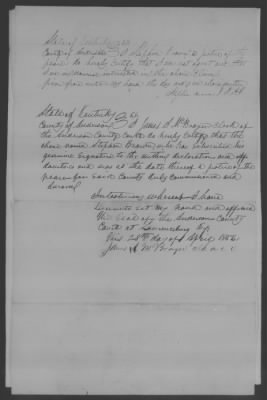 State of Kentucky
County of Anderson I Stephen Brown a justice of the
peace do hereby certify that I am not agent nor
I am in no wise interested in the above claim
given from under my hand the day and year
Stephen Brown J.P.
State of Kentucky
County of Anderson I James B McBrayer clerk of
the Anderson County Court do hereby certify that the
above named Stephen Brown who has subscribed his
genuine signature to the within declaration and aff
idavits and was at the date thereof a justice of the
peace for said County duly commissioned and
sworn
In testimony whereof I have
hereunto set my hand and affixed
the seal of the Anderson County
Court at Lawrenceburg Ky
this 28th day of April 1856
James B McBrayer c.a.c.c.